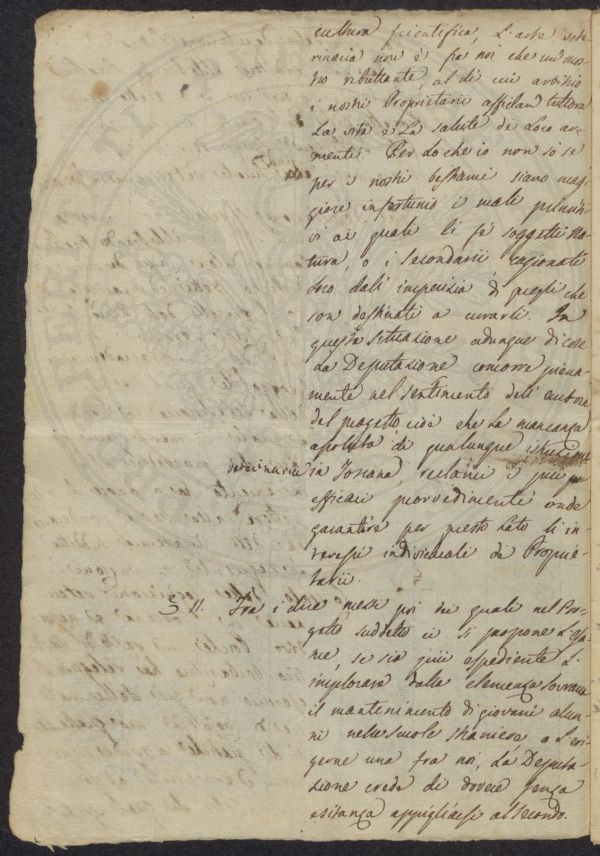 cultura scientifica, L'arte vete
rinaria non è fra noi che un mos
tro ributtante, al di cui arbitrio
i nostri Proprietarii affidan tuttora
La vita e La salute de Loro ar
menti. Per Lo che io non so se
per i nostri bestiami siano mag
giore infortunio i mali primiti
vi ai quali li fe' soggetti Na
tura, o i Secondarii cagionati
loro dall' imperizia di quegli che
son destinati a curarli. In
questa situazione adunque di cose
La Deputazione concorre piena
mente nel sentimento dell' autore
del progetto cioè che La mancanza
assoluta di qualunque istruzione
veterinaria in Toscana, reclami i più
efficaci provvedimenti onde
garantire per questo Lato li in
teressi individuali de Proprie
tarii.
§ 11. Tra i due mezzi poi de quali nel Pro
getto suddetto ci si propone L'Esa
me, se sia più espediente L'
implorare dalla clemenza Sovrana
il mantenimento di giovani alun
ni nelle Scuole straniere o L'eri
gerne una fra noi, La Deputa
zione crede di dovere senza
esitanza appigliarsi al secondo.